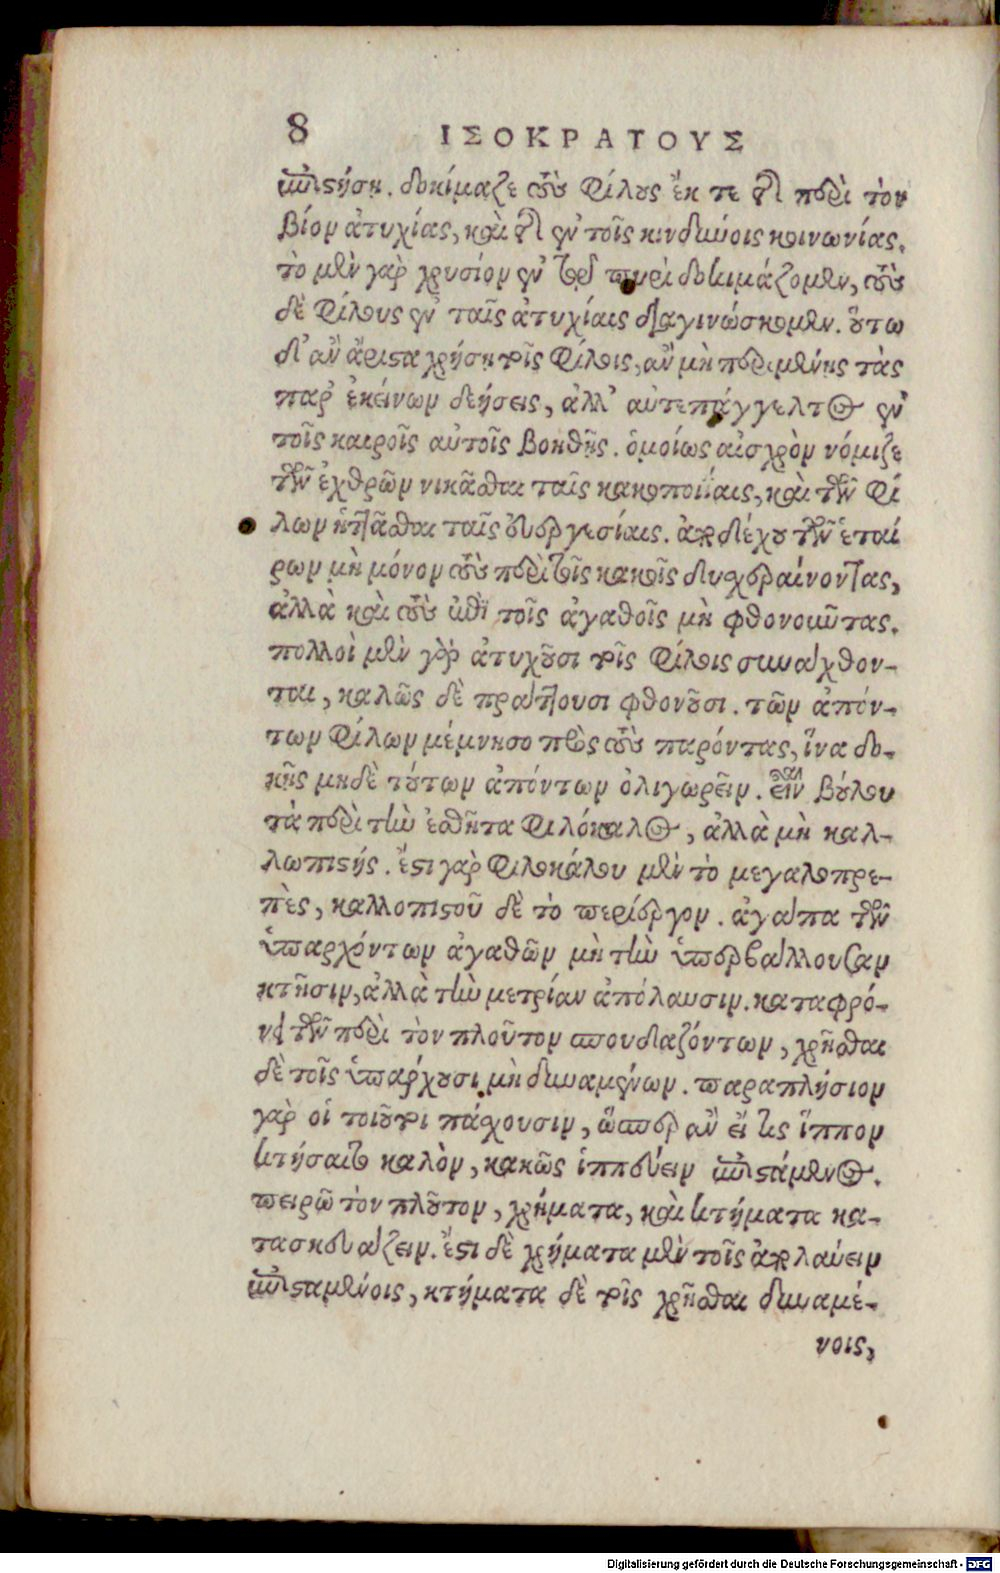 8 ΙΣΟΚΡΑΤΟΥΣ
ἐπιστήσῃ. δοκίμαζε τοὺς φίλους ἔκ τε τῆς περὶ τὸν
βίον ἀτυχίας, καὶ τῆς ἐν τοῖς κινδύνοις κοινωνίας.
τὸ μὲν γὰρ χρυσίον ἐν τῷ πυρὶ δοκιμάζομεν, τοὺς
δὲ φίλους ἐν ταῖς ἀτυχίαις διαγινώσκομεν. οὕτω
δ' ἂν ἄριστα χρήσῃ τοῖς φίλοις, ἂν μὴ περιμένῃς τὰς
παρ' ἐκείνων δεήσεις, ἀλλ' αὐτεπάγγελτος ἐν
τοῖς καιροῖς αὐτοῖς βοηθῇς. ὁμοίως αἰσχρὸν νόμιζε
τῶν ἐχθρῶν νικᾶσθαι ταῖς κακοποιίαις, καὶ τῶν φί
λων ἡττᾶσθαι ταῖς εὐεργεσίαις. ἀποδέχου τῶν ἑταί
ρων μὴ μόνον τοὺς περὶ τοῖς κακοῖς δυσχεραίνοντας,
ἀλλὰ καὶ τοὺς ἐπὶ τοῖς ἀγαθοῖς μὴ φθονοῦντας.
πολλοὶ μὲν γὰρ ἀτυχοῦσι τοῖς φίλοις συνάχθον-
ται, καλῶς δὲ πράττουσι φθονοῦσι. τῶν ἀπόν-
των φίλων μέμνησο πρὸς τοὺς παρόντας, ἵνα δο-
κῇς μηδὲ τούτων ἀπόντων ὀλιγωρεῖν. εἶναι βούλου
τὰ περὶ τὴν ἐσθῆτα φιλόκαλος, ἀλλὰ μὴ καλ-
λωπιστής. ἔστι γὰρ φιλοκάλου μὲν τὸ μεγαλοπρε-
πὲς, καλλοπιστοῦ δὲ τὸ περίεργον. ἀγάπα τῶν
ὑπαρχόντων ἀγαθῶν μὴ τὴν ὑπερβάλλουσαν
κτῆσιν, ἀλλὰ τὴν μετρίαν ἀπόλαυσιν. καταφρό-
νει τῶν περὶ τὸν πλοῦτον σπουδαζόντων, χρῆσθαι
δὲ τοῖς ὑπάρχουσι μὴ δυναμένων. παραπλήσιον
γὰρ οἱ τοιοῦτοι πάσχουσιν, ὥσπερ ἂν εἴ τις ἵππον
κτήσαιτο καλὸν, κακῶς ἱππεύειν ἐπιστάμενος.
πειρῶ τὸν πλοῦτον, χρήματα, καὶ κτήματα κα-
τασκευάζειν. ἔστι δὲ χρήματα μὲν τοῖς ἀπολαύειν
ἐπισταμένοις, κτήματα δὲ τοῖς χρῆσθαι δυναμέ-
νοις,
Digitalisierung gefördert durch die Deutsche Forschungsgemeinschaft - DFG